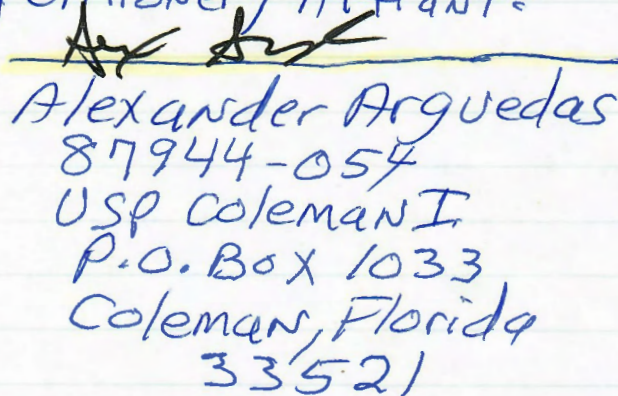 Alexander Arguedas
87944-054
USP Coleman I
P.O. Box 1033
Coleman, Florida
33521